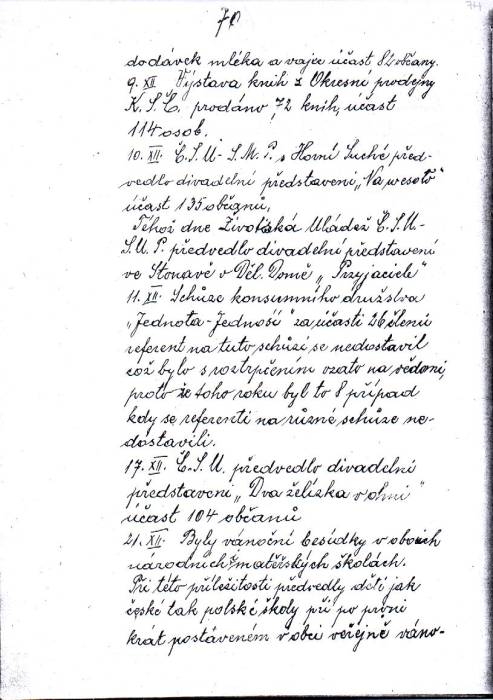 70
74
dodávek mléka a vajec účast 82 občany.
9. XII. Výstava knih z Okresní prodejny
K.S.Č. prodáno 72 knih, účast
114 osob.
10. XII. Č.S.M - S.M.P. s Horní Suché před-
vedlo divadelní představení „Na wesoło"
účast 135 občanů,
Téhož dne Životická Mládež Č.S.M-
S.M.P. předvedlo divadelní představení
ve Stonavě v Děl. Domě „Przyjaciele"
11. XII. Schůze konsumního družstva
„Jednota-Jedność" za účasti 26 členů
referent na tuto schůzi se nedostavil
což bylo s roztrpčením vzato na vědomí,
proto že toho roku byl to 8 případ
kdy se referenti na různé schůze ne-
dostavili.
17. XII. Č.S.M. předvedlo divadelní
představení „Dva želízka v ohni"
účast 104 občanů
21. XII. Byly vánoční besídky v oboich
národních mateřských školách.
Při této příležitosti předvedly děti jak
české tak polské školy při po první
krát postáveném v obci veřejně váno-